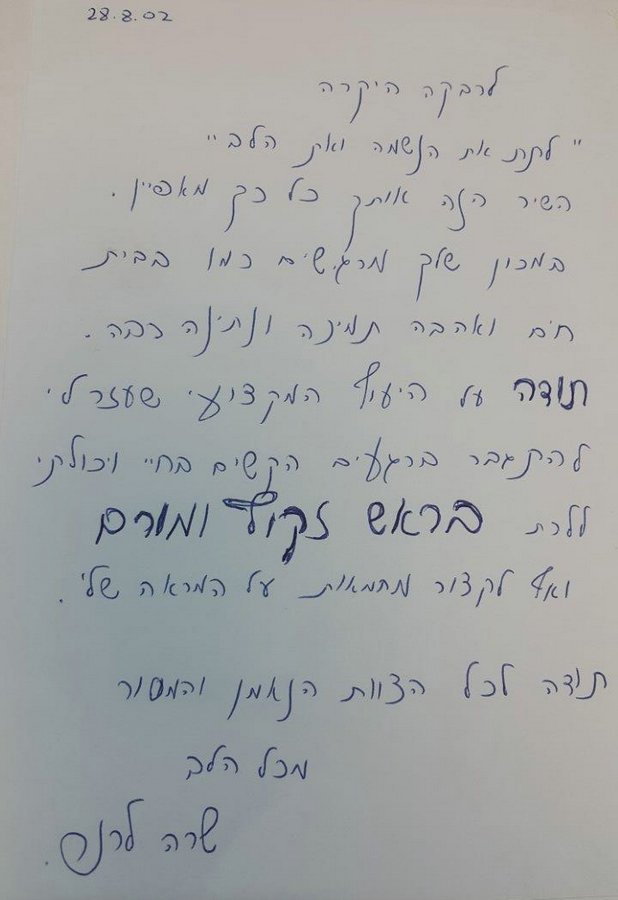 28.8.02
לרבקה היקרה
"לתת את הנשמה ואת הלב"
השיר הזה אותך כל כך מאפיין.
במכון שלך מרגישים כמו בבית
חום ואהבה תמיכה ונתינה רבה.
תודה על היעוץ המקצועי שעזר לי
להתגבר ברגעים הקשים בחיי ויכולתי
ללכת בראש זקוף ומורם
ואף לקצור מחמאות על המראה שלי.
תודה לכל הצוות הנאמן והמסור
מכל הלב
שרה לרנר.